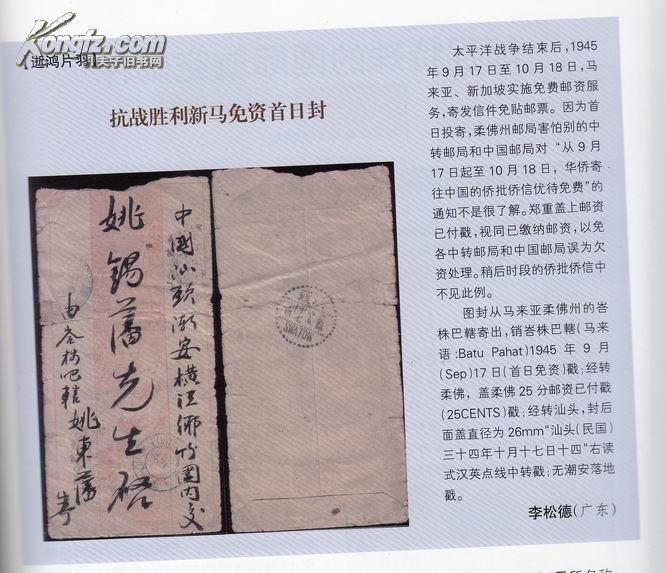 Kongfz.com
孔夫子旧书网
【逝鸿片羽】
抗战胜利新马免资首日封
中国汕頭潮安橫江鄉竹園内交
姚錫藩先生啓
由峇株吧轄姚東藩寄
SWATOW
太平洋战争结束后,1945
年9月17日至10月18日,马
来亚、新加坡实施免费邮资服
务,寄发信件免贴邮票。因为首
日投寄,柔佛州邮局害怕别的中
转邮局和中国邮局对“从9月
17日起至10月18日,华侨寄
往中国的侨批侨信优待免费”的
通知不是很了解。郑重盖上邮资
已付戳,视同已缴纳邮资,以免
各中转邮局和中国邮局误为欠
资处理。稍后时段的侨批侨信中
不见此例。
图封从马来亚柔佛州的峇
株巴辖寄出,销峇株巴辖(马来
语:Batu Pahat)1945年9月
(Sep)17日(首日免资)戳;经转
柔佛,盖柔佛25分邮资已付戳
(25CENTS)戳;经转汕头,封后
面盖直径为26mm“汕头(民国)
三十四年十月十七日十四”右读
式汉英点线中转戳;无潮安落地
戳。
李松德(广东)